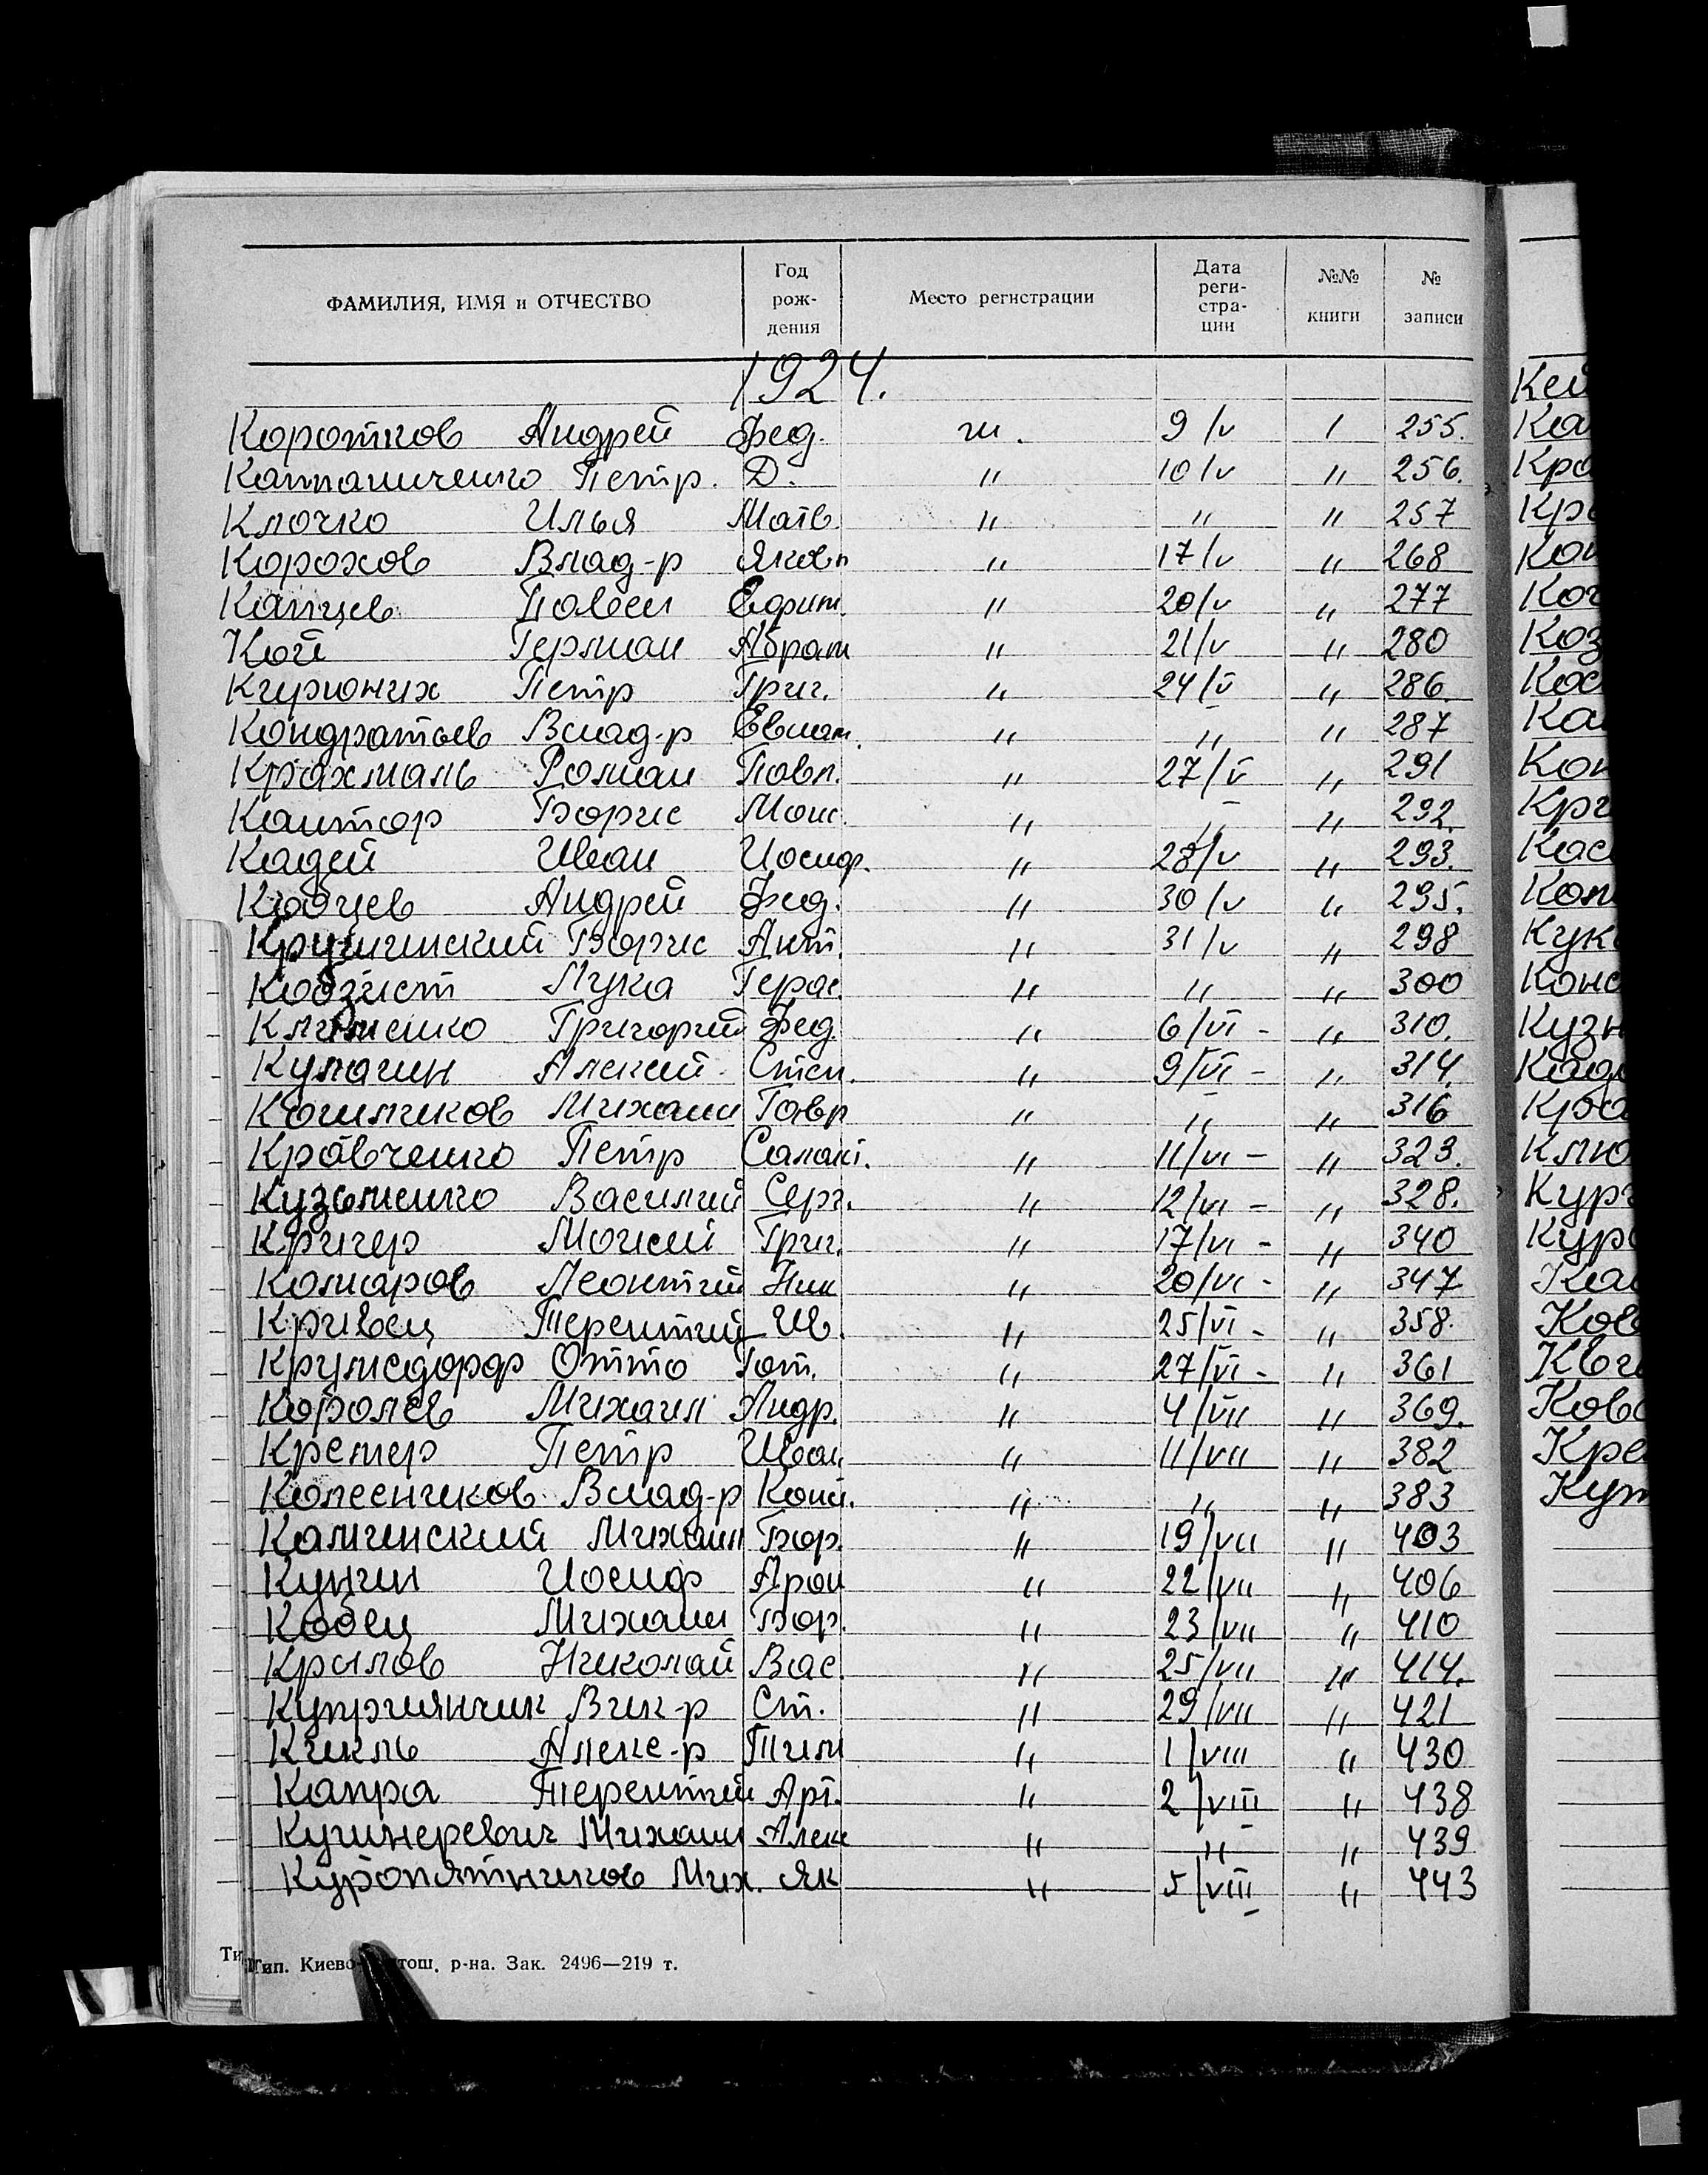 ФАМИЛИЯ, ИМЯ и ОТЧЕСТВО | Год рож- дения | Место регистрации | Дата реги- стра- ции | №№ книги | № записи
1924.
Коротков Андрей Фед. ш. 9/V 1 255.
Петр. Д. " 10/V " 256.
Клочко Илья Матв. " " " 257
Корохов Влад-р Яковл " 17/V " 268
Капцев Павел Ефим. " 20/V " 277
Кой Герман Абрам " 21/V " 280
Петр Григ. " 24/V " 286.
Кондратьев Влад-р " " " 287
Крахмаль Роман Павл. " 27/V " 291
Кантор Борис Моис. " " " 292.
Кадей Иван Иосиф. " 28/V " 293.
Андрей Фед. " 30/V " 295.
Борис Ант. " 31/V " 298
Кобзист Лука Герас. " " " 300
Клименко Григорий Фед. " 6/VI - " 310.
Кулагин Алексей Степ. " 9/VI - " 314.
Михаил Гавр " " " 316
Кравченко Петр " 11/VI - " 323.
Кузьменко Василий Серг. " 12/VI - " 328.
Кригер Моисей Григ. " 17/VI - " 340
Комаров Леонтий Ник " 20/VI - " 347
Кривец Терентий Ив. " 25/VI - " 358.
Крумсдорф Отто Гот. " 27/VI - " 361
Королев Михаил Андр. " 4/VII " 369.
Кремер Петр Иван. " 11/VII " 382
Колесников Влад-р " " " 383
Калинский Михаил Бор. " 19/VII " 403
Кунин Иосиф Арон " 22/VII " 406
Кобец Михаил Бор. " 23/VII " 410
Крылов Николай Вас. " 25/VII " 414.
Куприянчик Вик-р Ст. " 29/VII " 421
Кикль Алекс-р Тим " 1/VIII " 430
Капра Терентий Арт. " 2/VIII " 438
Кушнеревич Михаил Алекс " " " 439
Куропятников Мих. Як " 5/VIII " 443
Тип. Киево- тош. р-на. Зак. 2496—219 т.